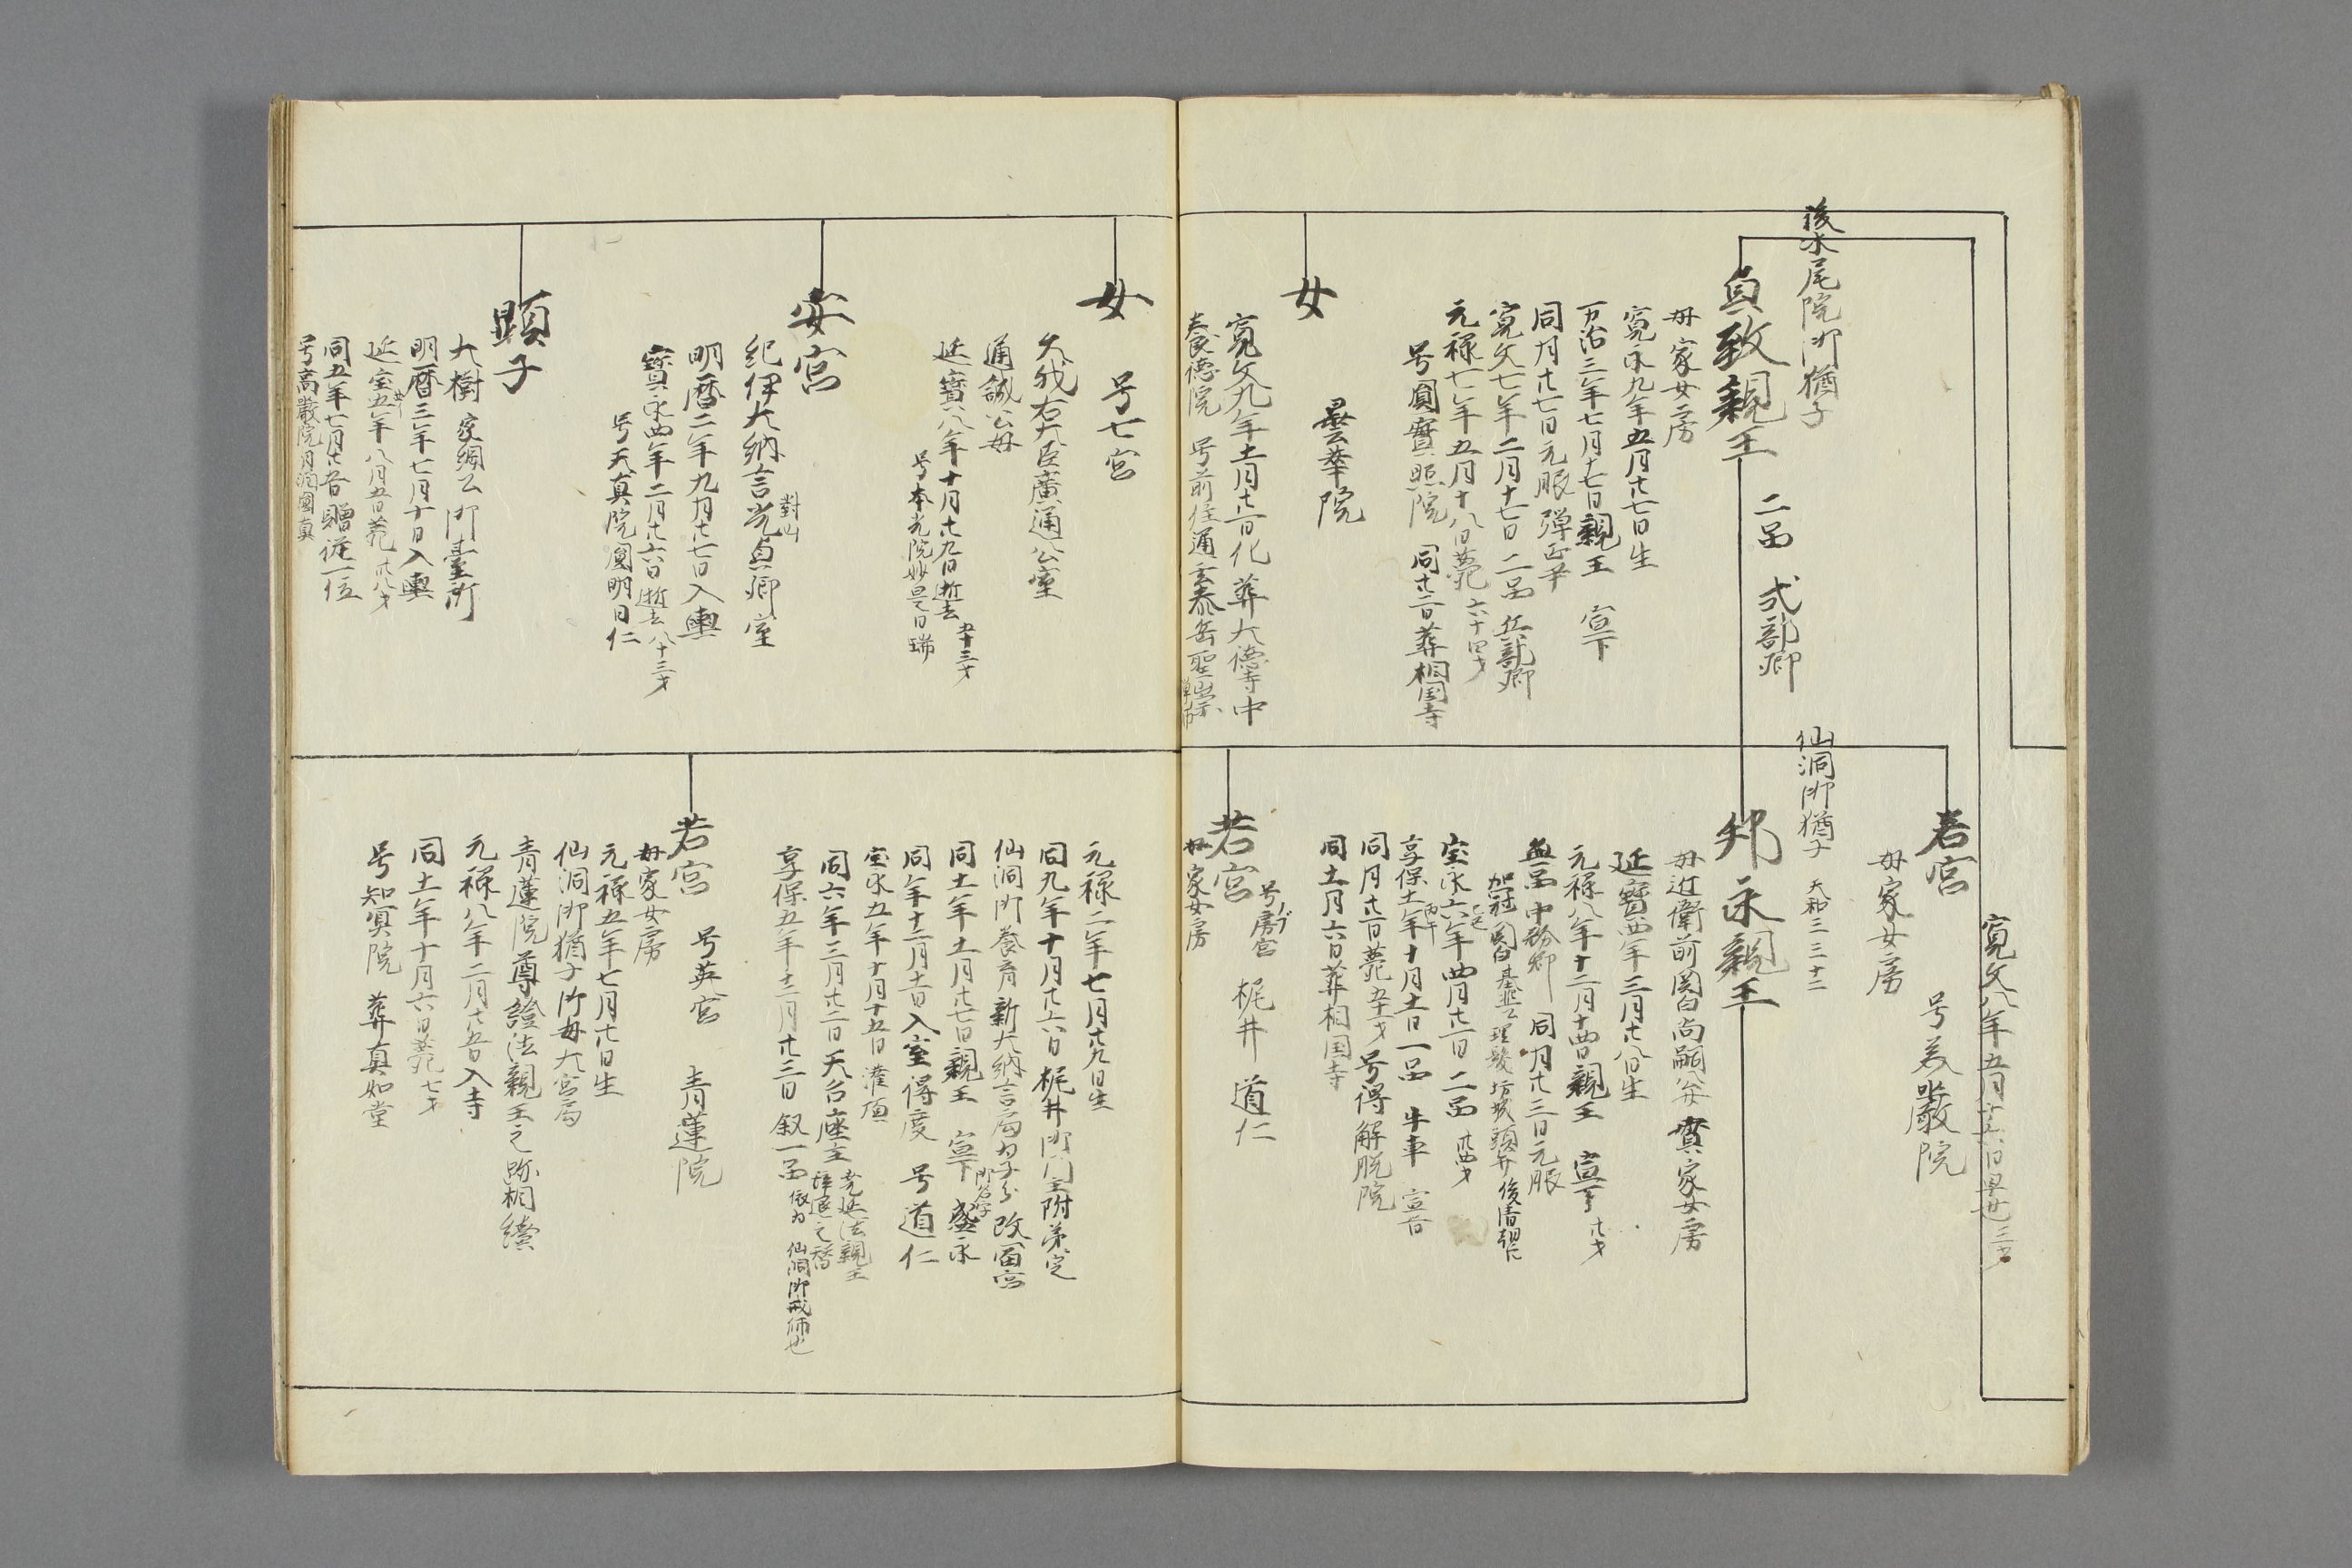 後水尾院御猶子
貞致親王 二品 式部卿
母家女房
寛永九年五月廿七日生
万治三年七月十七日親王 宣下
同月廿七日元服 弾正尹
寛文七年二月十七日 二品 兵部卿
元禄七年五月十八日薨 六十四才
号圓寶照院 同廿二日葬相国寺
女
曇華院
寛文九年十一月廿二日化 葬大德寺中
養徳院 号前住通玄泰岳聖崇禅師
女 号七宮
久我右大臣廣通公室
通誠公母
延寶八年十月廿九日逝去 五十三才
号本光院妙是日瑞
安宮
紀伊大納言光貞卿室
對山
明暦二年九月廿七日入輿
寶永四年二月廿六日逝去八十三才
号天真院圓明日仁
顕子
大樹 家綱公御臺所
明暦三年七月十日入輿
延宝五年八月五日薨 廿八才
同五年七月廿五日贈従一位
号高巌院月潤圓真
寛文八年五月十六日早世二才
若宮
号美嚴院
母家女房
仙洞御猶子 天和三三十三
邦永親王
母近衞前関白尚嗣公女 實家女房
延寶四年三月廿八日生
元禄八年十二月十四日親王 宣下 廿才
無品中務卿 同月廿三日元服
加冠関白基凞公 理髪坊城頭弁俊清朝臣
宝永六年四月廿一日 二品 廿四才
享保十一年十月十一日一品 牛車 宣旨
丙午
同月廿一日薨 五十一才 号得解脱院
同十一月六日葬相国寺
若宮
号房宮 梶井 道仁
母家女房
元禄二年七月廿九日生
同九年十月廿六日梶井御門主附弟定
仙洞御養育 新大納言局為子分 改富宮
同十一年十一月廿七日親王 宣下 盛永
御名字
同年十二月十一日入室得度 号道仁
宝永五年十月十五日灌頂
同六年三月廿二日天台座主 尭延法親王
辞退之替
享保五年十二月廿三日叙一品 依為 仙洞御戒師也
若宮 号英宮 青蓮院
母家女房
元禄五年七月廿日生
仙洞御猶子 御母大宮局
青蓮院尊證法親王之跡相續
元禄八年二月廿五日入寺
同十一年十月六日薨 七才
号知冥院 葬真如堂